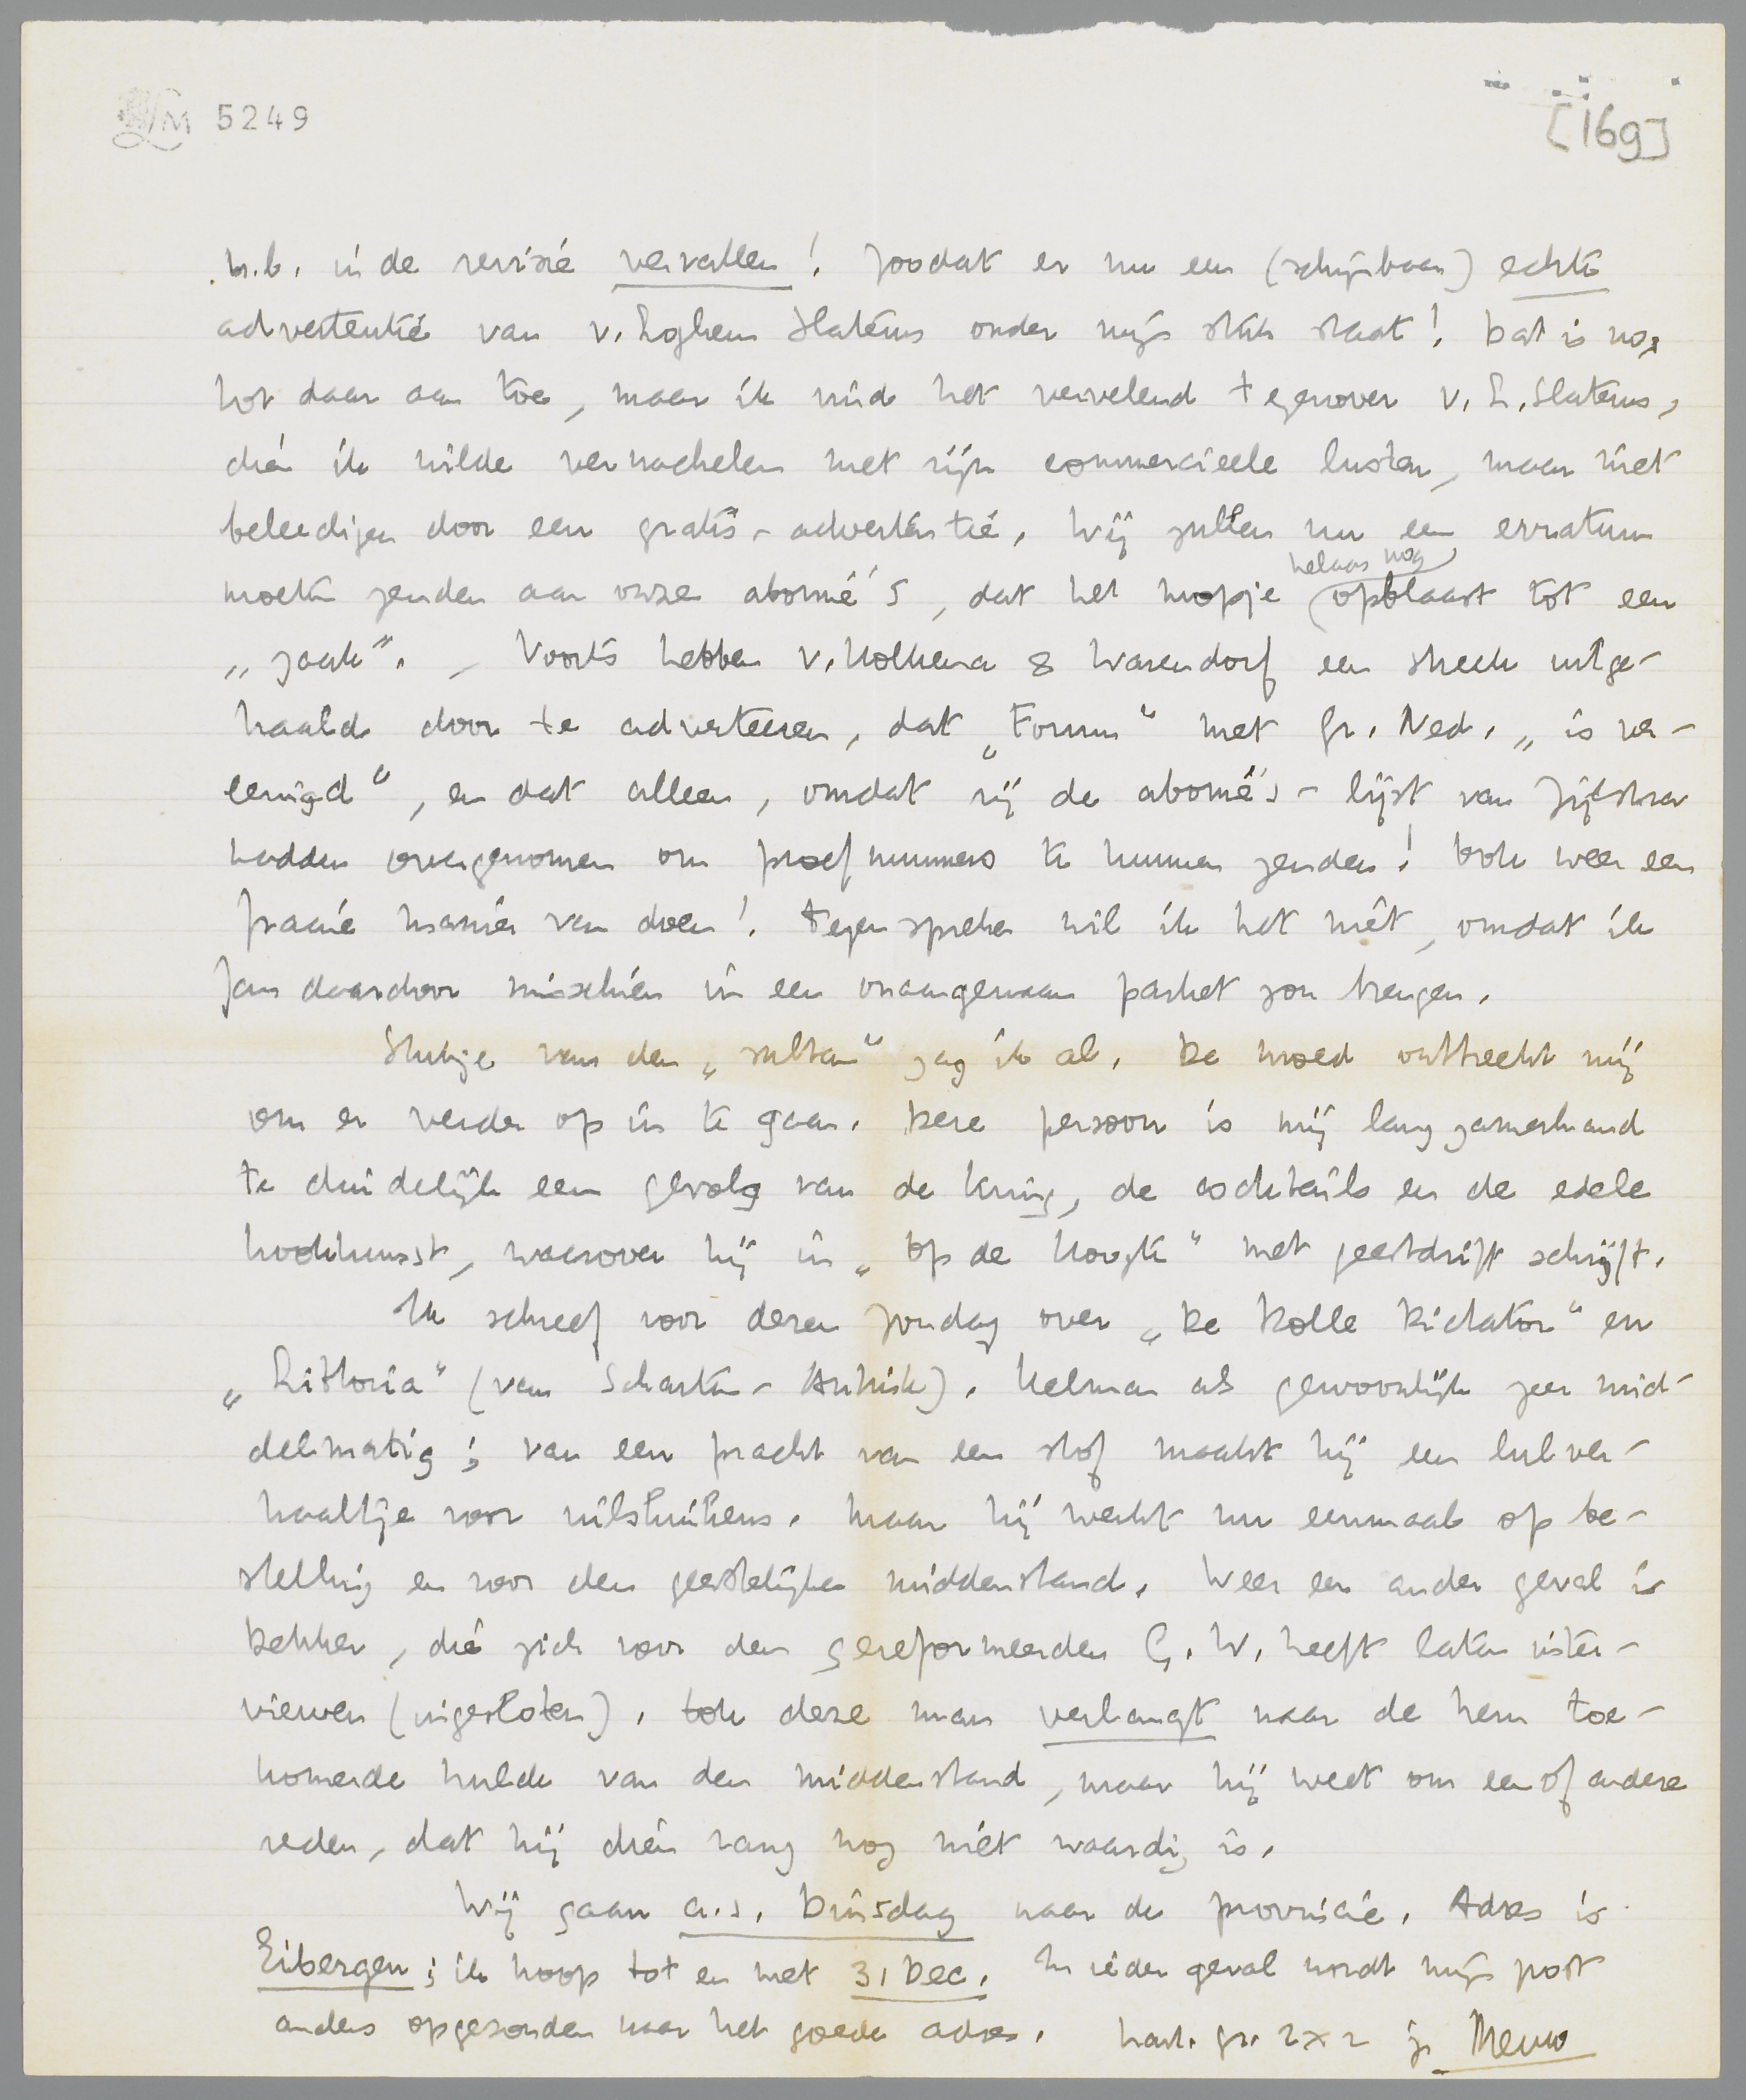 LM 5249
[169]
n.b. in de revisie vervallen! Zoodat er nu een (schijnbaar) echte
advertentie van v. Loghem Slaterus onder mijn stuk staat! Dat is nog
tot daar aan toe, maar ik vind het vervelend tegenover v. L. Slaterus,
dien ik wilde vernachelen met zijn commercieele lusten, maar niet
beleedigen door een gratis-advertentie. Wij zullen nu een erratum
moeten zenden aan onze abonné's, dat het mopje (helaas nog) opblaast tot een
„zaak". – Voorts hebben v. Holkema & Warendorf een streek uitge-
haald door te adverteeren, dat „Forum" met Gr. Ned. „is ver-
eenigd", en dat alleen, omdat zij de abonné's-lijst van Zijlstra
hadden overgenomen om proefnummers te kunnen zenden! Ook weer een
fraaie manier van doen! Tegenspreken wil ik het niet, omdat ik
Jan daardoor misschien in een onaangenaam parket zou brengen.
Stukje van den „sultan" zag ik al. De moed ontbreekt mij
om er verder op in te gaan. Deze persoon is mij langzamerhand
te duidelijk een gevolg van de kring, de cocktails en de edele
kookkunst, waarover hij in „Op de Hoogte" met geestdrift schrijft.
Ik schreef voor dezen Zondag over „De Dolle Dictator" en
„Littoria" (van Scharten-Antink). Helman als gewoonlijk zeer mid-
delmatig; van een pracht van een stof maakt hij een lulver-
haaltje voor uilskuikens. Maar hij werkt nu eenmaal op be-
stelling en voor den geestelijken middenstand. Weer een ander geval is
Dekker, die zich voor den gereformeerden G.W. heeft laten inter-
viewen (ingesloten). Ook deze man verlangt naar de hem toe-
komende hulde van den middenstand, maar hij weet om een of andere
reden, dat hij dien rang nog niet waardig is.
Wij gaan a.s. Dinsdag naar de provincie. Adres is
Eibergen; ik hoop tot en met 31 Dec. In ieder geval wordt mijn post
anders opgezonden naar het goede adres. hart. gr. 2 x 2 je Menno